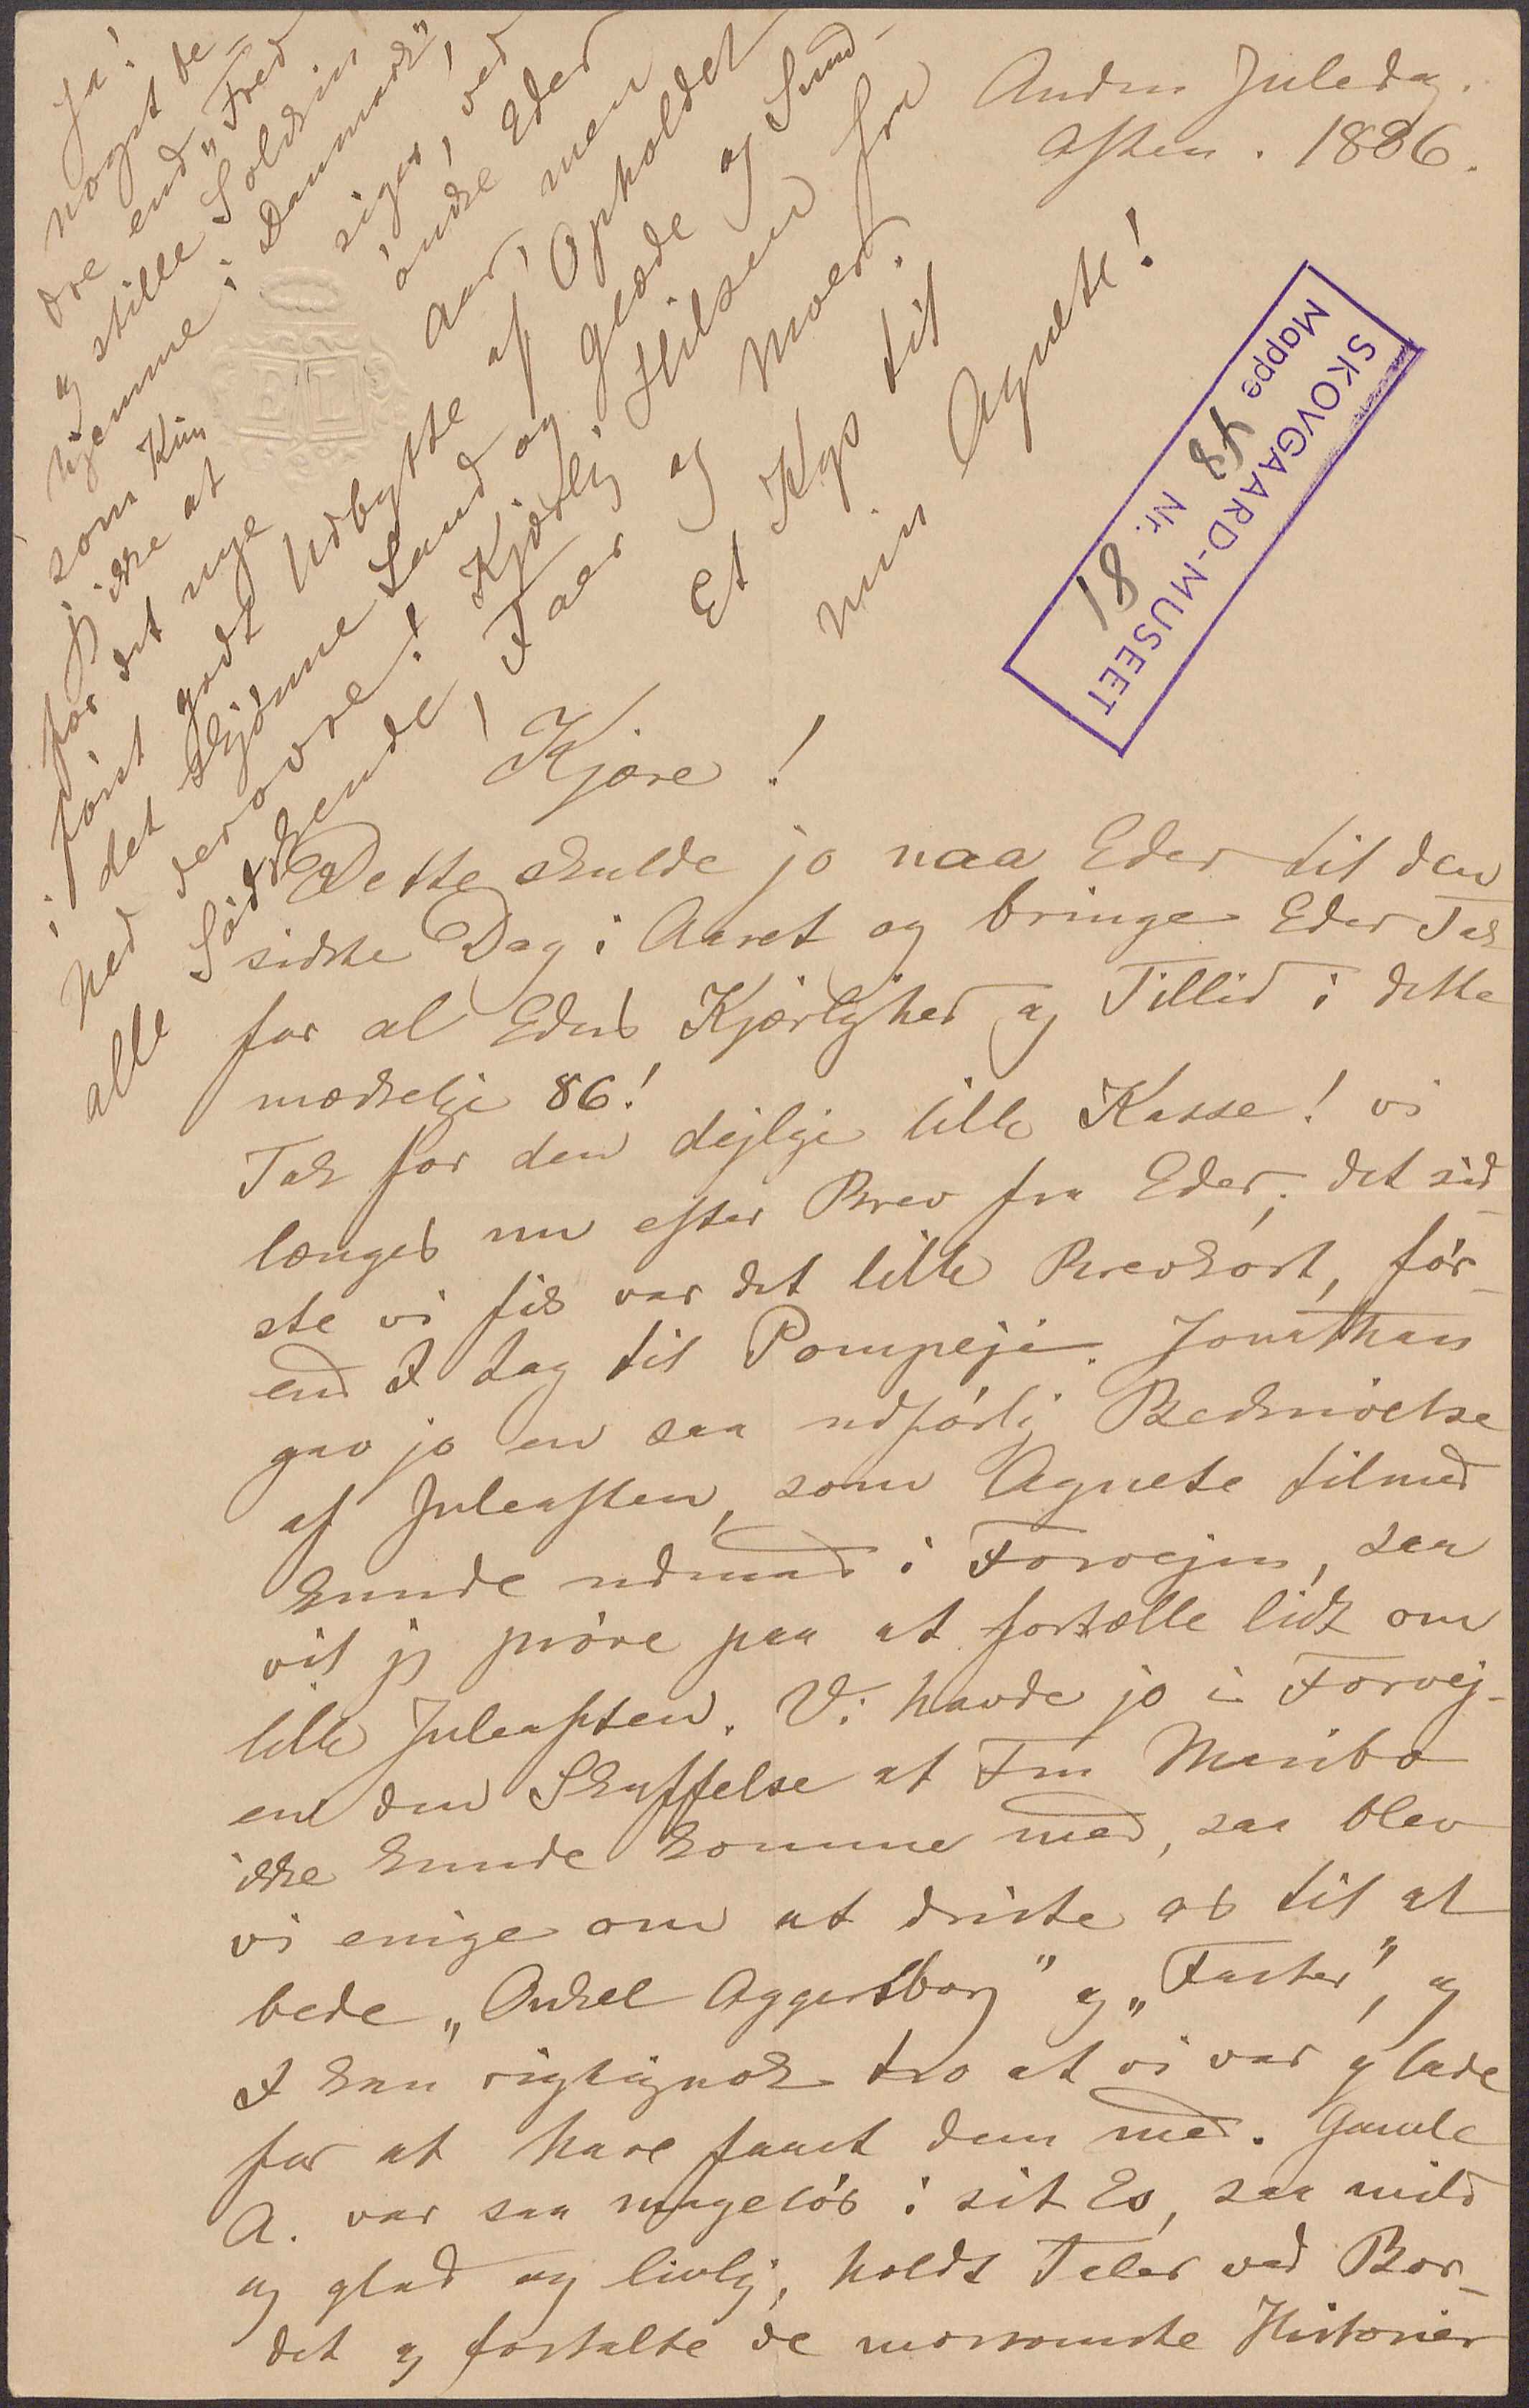 Anden Juledag.
Aften. 1886.
SKOVGAARD-MUSEET
Mappe 48 Nr. 81
Kjære!
Dette skulde jo naa Eder til den
sidste Dag i Aaret og bringe Eder Tak
for al Eders Kjærlighed og Tillid i dette
mærkelige 86!
Tak for den dejlige lille Kasse! vi
længes nu efter Brev fra Eder, det sid-
ste vi fik var det lille Brevkort, før-
end I tog til Pompeji. Jonathan
gav jo en saa udførlig Beskrivelse
af Juleaften, som Agnete tilmed
kunde udmad i Forvejen, saa
vil jeg prøve paa at fortælle lidt om
lille Juleaften. Vi havde jo i Forvej-
en den Skuffelse at Fru Maribo
ikke kunde komme med, saa blev
vi enige om at driste os til at
bede „Onkel Aggersborg" og „Faster", og
I kan rigtignok tro at vi var glade
for at have faaet dem med. Gamle
A. var saa mageløs i sit Es, saa mild
og glad og livlig, holdt Taler ved Bor-
det og fortalte de morsomste Historier
Ja!
noget be-
dre end „Fred
og stille Solskin
hjemme i Danmark",
som Kun siger, ved
jeg ikke at ønske Eder
for det nye Aar, men
først godt Udbytte af Opholdet
i det skjønne Land og Glæde og Sund-
hed derovre! Kjærlig Hilsen fra
alle Sødskende, Faer og Moer.
Et Kys til
min Agnete!